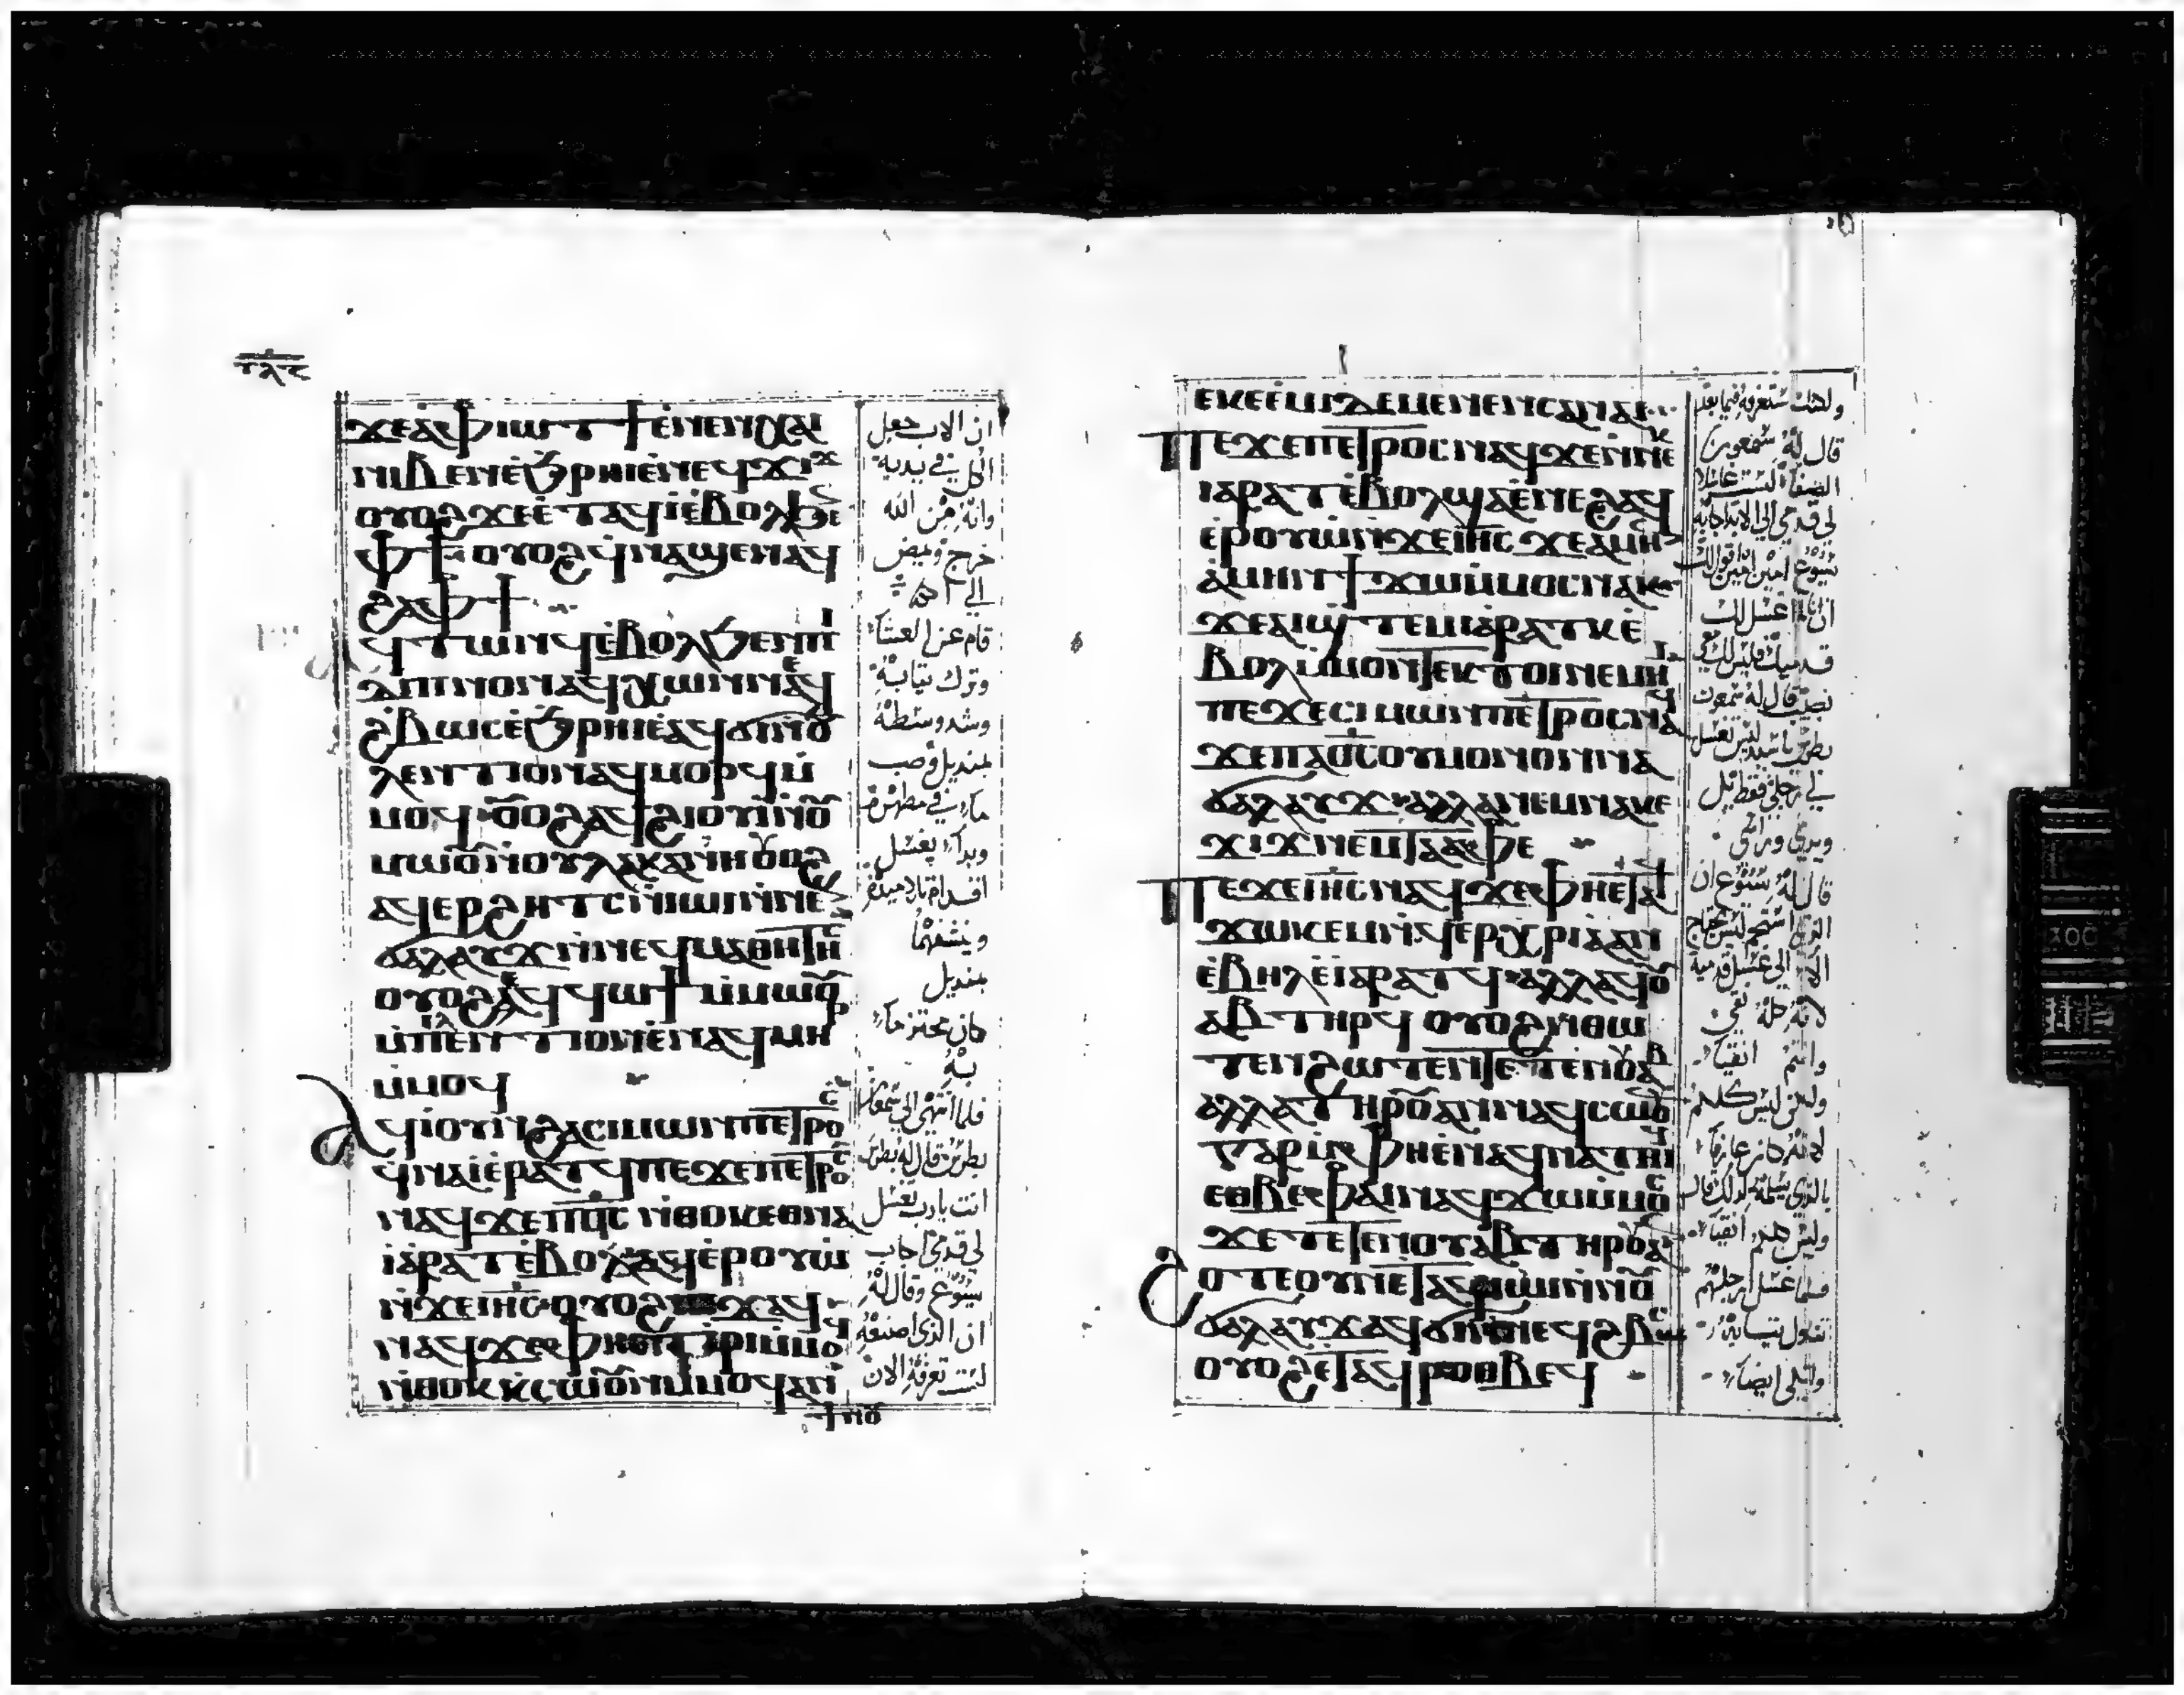 ϫⲉⲁ̀ⲫⲓⲱⲧϯⲉ̀ⲛⲉⲛⲭⲁⲓ
ⲛⲓⲃⲉⲛⲉ̀ϧⲣⲏⲓⲉ̀ⲛⲉϥϫⲓϫ
ⲟⲩⲟϩϫⲉⲉ̀ⲧⲁϥⲓ̀ⲉ̀ⲃⲟⲗϧⲉⲛ
ⲫϯ ⲟⲩⲟϩϥ̀ⲛⲁϣⲉⲛⲁϥ
ϩⲁⲫϯ
ϥⲧⲱⲛϥⲉ̀ⲃⲟⲗϧⲉⲛⲡⲓ
ⲇⲓⲡⲛⲟⲛⲁϥⲭⲱⲛ̀ⲛⲉϥ
ϩ̀ⲃⲱⲥⲉ̀ϧⲣⲏⲓⲉⲁϥϭⲓⲛⲟⲩ
ⲗⲉⲛⲧⲓⲟⲛⲁϥⲙⲟⲣϥⲙ̀
ⲙⲟϥ ⲟⲩⲟϩⲁϥϩⲓⲟⲩⲓⲛ̀ⲟⲩ
ⲙⲱⲟⲩⲛ̀ⲟⲩⲗⲁⲕⲁⲛⲏ ⲟⲩⲟϩ
ⲁϥⲉⲣϩⲏⲧⲥⲛ̀ⲓⲱⲓⲛ̀ⲛⲉⲛ
ϭⲁⲗⲁⲩϫⲛ̀ⲛⲉϥⲙⲁⲑⲏⲧⲏⲥ
ⲟⲩⲟϩⲛⲁϥϥⲱϯⲙ̀ⲙⲱⲟⲩ
ⲙ̀ⲡⲓⲗⲉⲛⲧⲓⲟⲛⲉ̀ⲛⲁϥⲙⲏⲣ
ⲙ̀ⲙⲟϥ
ⲁϥⲓ̀ⲟⲩⲛϩⲁⲥⲓⲙⲱⲛⲡⲉⲧⲣⲟⲥ
ϥ̀ⲛⲁⲓⲉ̀ⲣⲁⲧϥⲡⲉϫⲉⲡⲉⲧⲣⲟⲥ
ⲛⲁϥϫⲉⲡϭⲥ ⲛ̀ⲑⲟⲕⲉⲑⲛⲁ
ⲓⲁ̀ⲣⲁⲧⲉ̀ⲃⲟⲗⲁϥⲉⲣⲟⲩⲱ̀
ⲛ̀ϫⲉⲓⲏⲥ ⲟⲩⲟϩ ϫⲁϥ
ⲛⲁϥϫⲉⲫⲏⲉϯⲓⲣⲓⲙ̀ⲙⲟϥ
ⲛ̀ⲑⲟⲕⲕ̀ⲥⲱⲟⲩⲛⲙ̀ⲙⲟϥⲁⲛ
ϯⲛⲟⲩ
ان الاب جعل
الكل في يديه
وانه من الله
خرج ويمض
الي الله
قام عن العشاء
وترك ثيابه
وشد وسطه
بمنديل وصب
ماء في مطهرة
وبداء يغسل
اقدام تلاميذه
وينشفهما
بمنديل
كان محتزماء
به
فلما انتهى الي شمعان
بطرس قال له بطرس
انت يارب تغسل
لي قدمي اجاب
يسوع وقال له
ان الذي اصنعه
لست تعرفه الان
ⲉⲕⲉⲉ̀ⲙⲓⲇⲉⲙⲉⲛⲉⲛⲥⲁⲛⲁⲓ
ⲡⲉϫⲉⲡⲉⲧⲣⲟⲥⲛⲁϥϫⲉⲛ̀ⲛⲉⲕ
ⲓⲁⲣⲁⲧⲉ̀ⲃⲟⲗϣⲁⲉ̀ⲛⲉϩⲁϥ
ⲉ̀ⲣⲟⲩⲱ̀ⲛ̀ϫⲉⲓⲏⲥ ϫⲉⲁⲙⲏⲛ
ⲁ̀ⲙⲏⲛϯϫⲱⲙ̀ⲙⲟⲥⲛⲁⲕ
ϫⲉⲁⲓϣ̀ⲧⲉⲙⲓⲁ̀ⲣⲁⲧⲕⲉ̀
ⲃⲟⲗⲙ̀ⲙⲟⲛⲧⲉⲕⲧⲟⲓⲛⲉⲙⲏⲓ
ⲡⲉϫⲉⲥⲓⲙⲱⲛⲡⲉⲧⲣⲟⲥⲛⲁϥ
ϫⲉⲡⲁϭⲥⲟⲩⲙⲟⲛⲟⲛⲛⲁ
ϭⲁⲗⲁⲩϫ ⲁⲗⲗⲁⲛⲉⲙⲛⲁⲕⲉ
ϫⲓϫⲛⲉⲙⲧⲁⲁⲫⲉ
ⲡⲉϫⲉⲓⲏⲥⲛⲁϥϫⲉⲫⲏⲉⲧⲁϥ
ϫⲱⲕⲉⲙⲛ̀ϥⲉⲣⲭⲣⲓⲁⲁⲛ
ⲉ̀ⲃⲏⲗⲉ̀ⲓⲁⲣⲁⲧϥ ⲁⲗⲗⲁϥⲟⲩ
ⲁⲃⲧⲏⲣϥ ⲟⲩⲟϩⲛ̀ⲑⲱ
ⲧⲉⲛϩⲱⲧⲉⲛⲧⲉⲧⲉⲛⲟⲩⲁⲃ
ⲁⲗⲗⲁⲧⲏⲣⲟⲩⲁⲛⲛⲁϥⲥⲱⲟⲩⲛ
ⲅⲁⲣⲙ̀ⲫⲏⲉ̀ⲛⲁϥⲛⲁⲧⲏⲓϥ
ⲉⲑⲃⲉⲫⲁⲓⲛⲁϥϫⲱⲙ̀ⲙⲟⲥ
ϫⲉⲧⲉⲧⲉⲛⲟⲩⲁⲃⲧⲏⲣⲟⲩⲁⲛ
ϩⲟⲧⲉⲟⲩⲛⲉⲧⲁϥⲓⲱⲓⲛ̀ⲛⲟⲩ
ϭⲁⲗⲁⲩϫⲁϥϭⲓⲛ̀ⲛⲉϥϩⲃⲱⲥ
ⲟⲩⲟϩⲉⲧⲁϥⲣⲟⲑⲃⲉϥ
ولكنك ستعرفه فيما بعد
قال له شمعون
الصفا لست غاسلا
لي قدمي الي الابد اجابه
يسوع امين امين اقول لك
ان لم اغسل لك
قدميك فليس لك معي
نصيب قال له شمعون
بطرس يا سيد ليس تغسل
لي رجلي فقط بل
ويدي وراسي
قال له يسوع ان
الذي استحم ليس يحتاج
الا الي غسل قدميه
لانه كله نقي
وانتم انقياء
ولكن ليس كلكم
لانه كان عارفا
بالذي يسلمه لذلك قال
وليس كلكم انقياء
فلما غسل ارجلهم
تناول ثيابه
واتكى ايضا